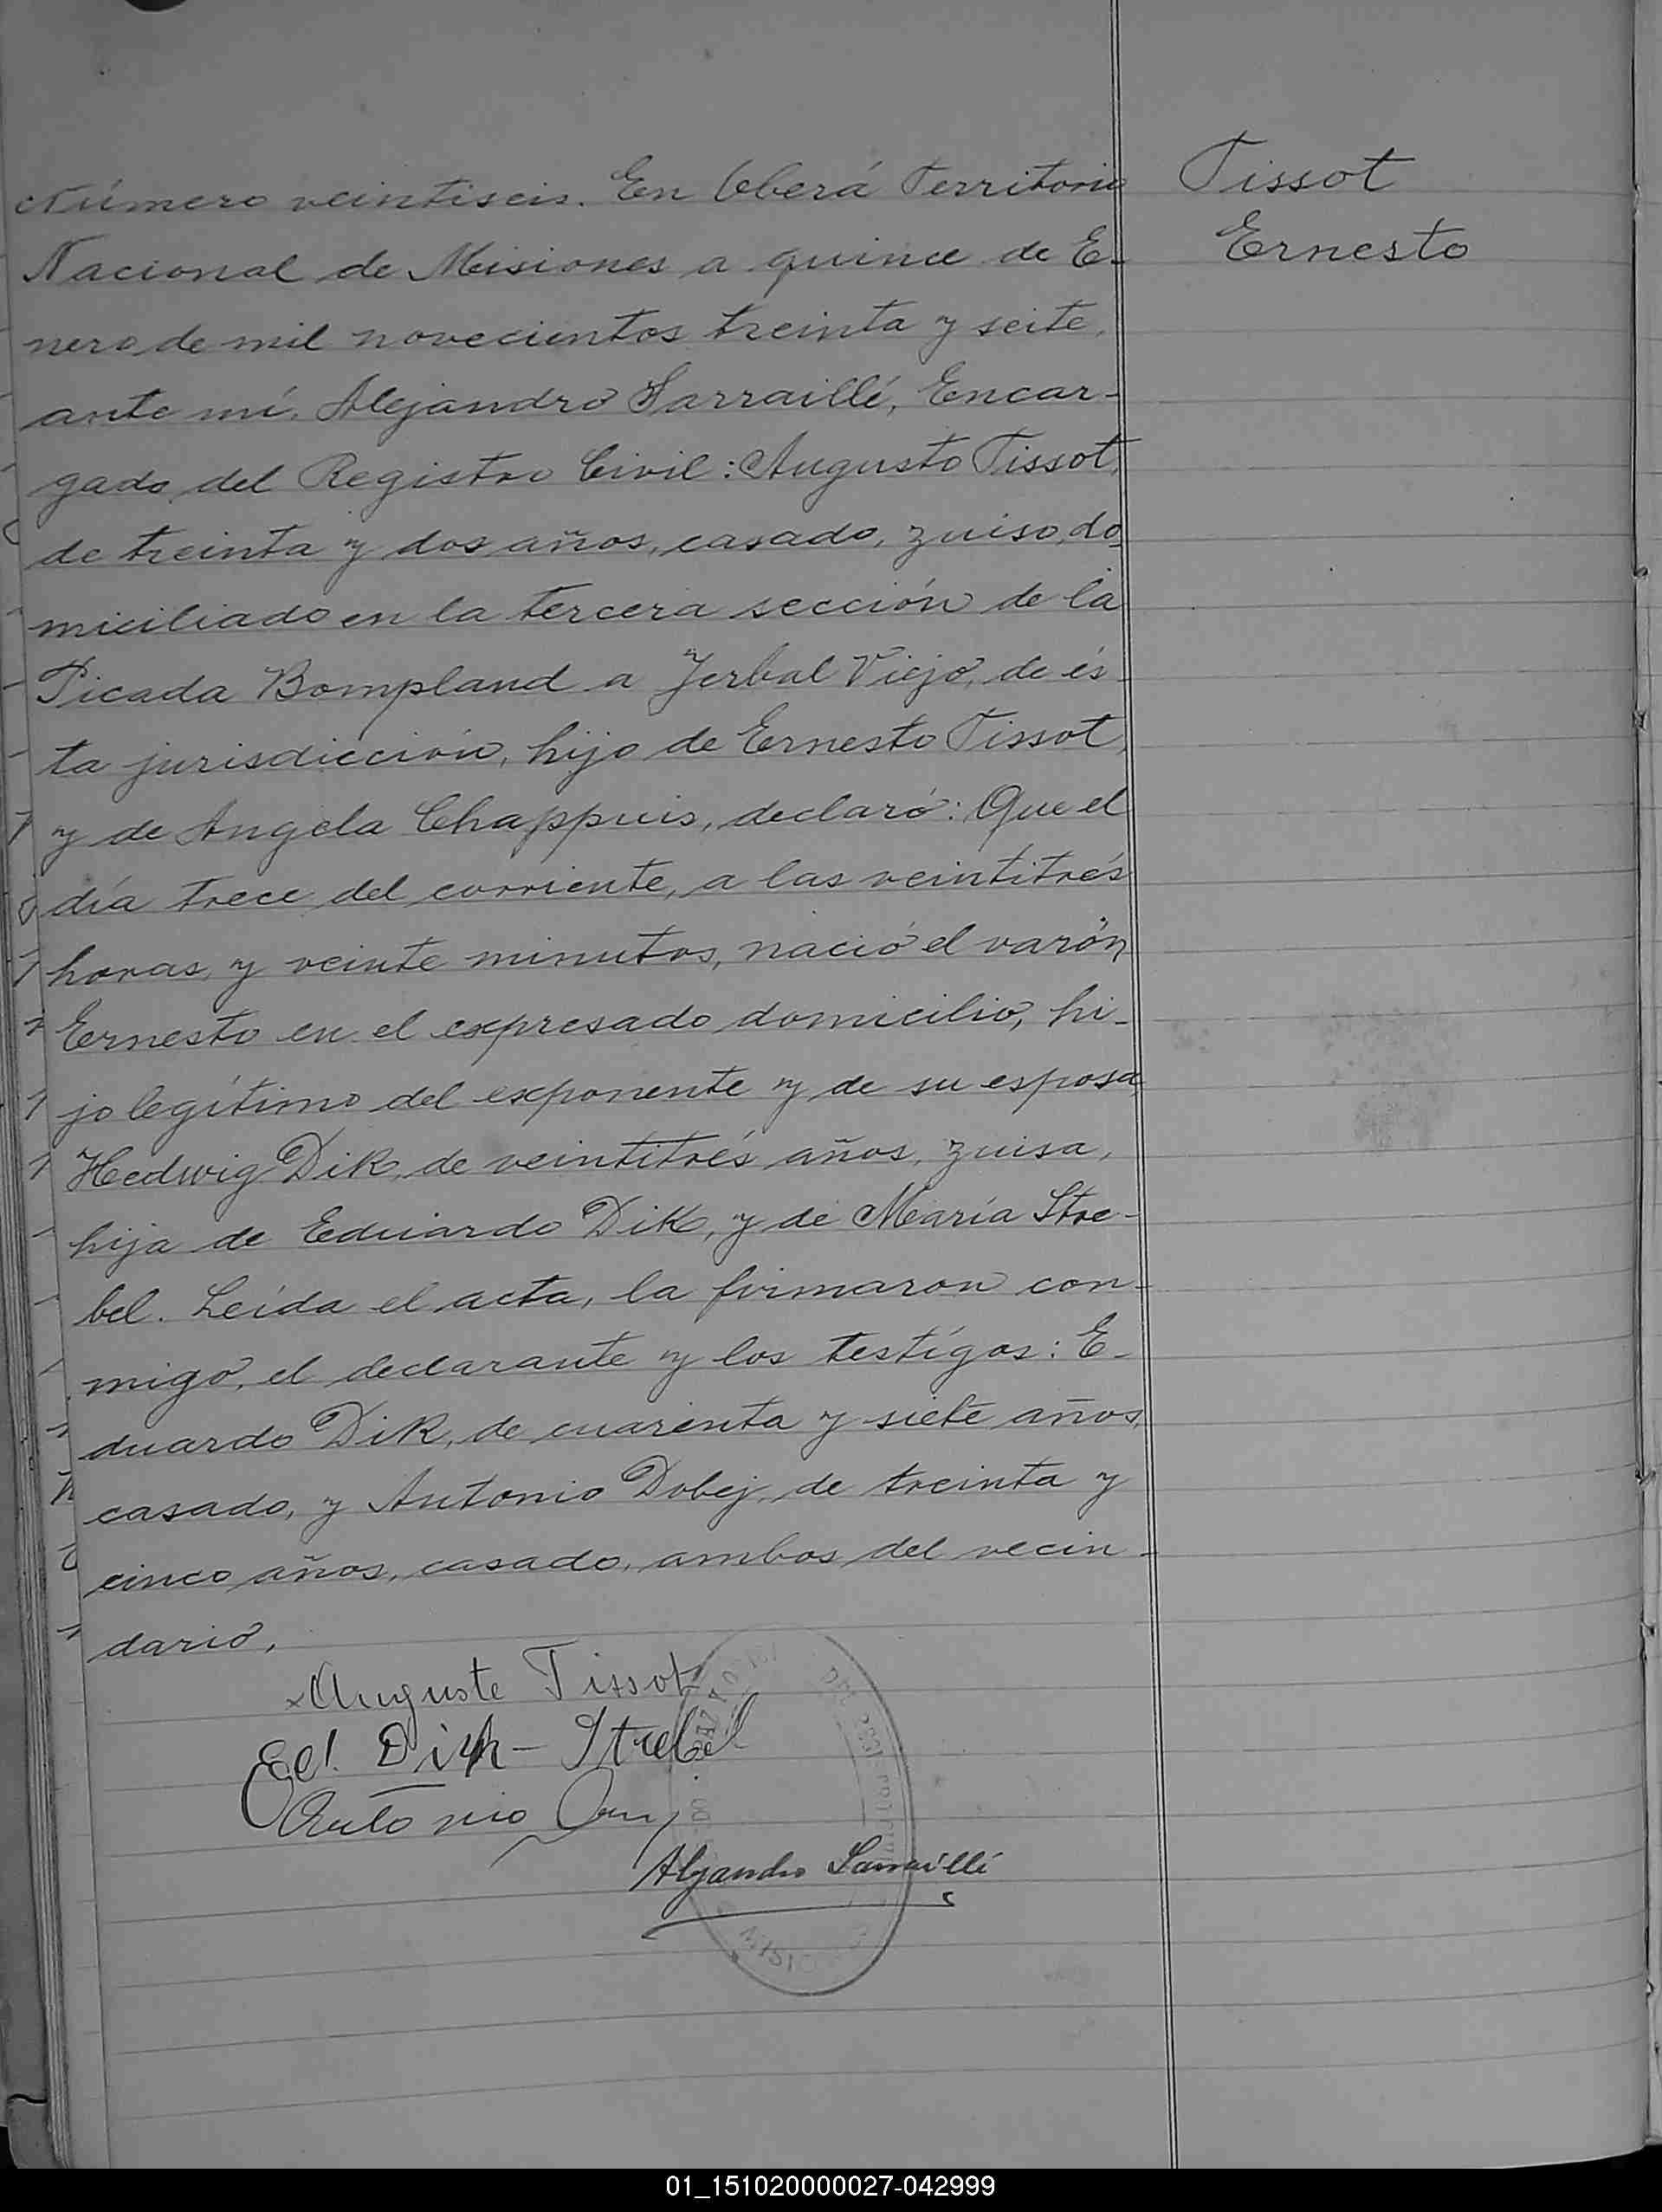 Número veintiseis. En Oberá Territorio
Nacional de Misiones a quince de E-
nero de mil novecientos treinta y seite,
ante mí, Alejandro Sarraillé, Encar-
gado del Registro Civil: Augusto Tissot,
de treinta y dos años, casado, zuiso, do-
miciliado en la tercera sección de la
Picada Bompland a Yerbal Viejo, de és-
ta jurisdicción, hijo de Ernesto Tissot,
y de Angela Chappuis, declaró: Que el
día trece del corriente, a las veintitrés
horas, y veinte minutos, nació el varón
Ernesto en el expresado domicilio, hi-
jo legítimo del exponente y de su esposa,
Hedwig Dik, de veintitrés años, zuisa,
hija de Eduardo Dik, y de María Stre-
bel. Leída el acta, la firmaron con-
migo, el declarante y los testígos: E-
duardo Dik, de cuarenta y siete años,
casado, y Antonio Dobej, de treinta y
cinco años, casado, ambos del vecin-
dario.
Tissot
Ernesto
Auguste Tissot
Ed. Dik - Strebel
Antonio
Alejandro Sarraillé
01_151020000027-042999